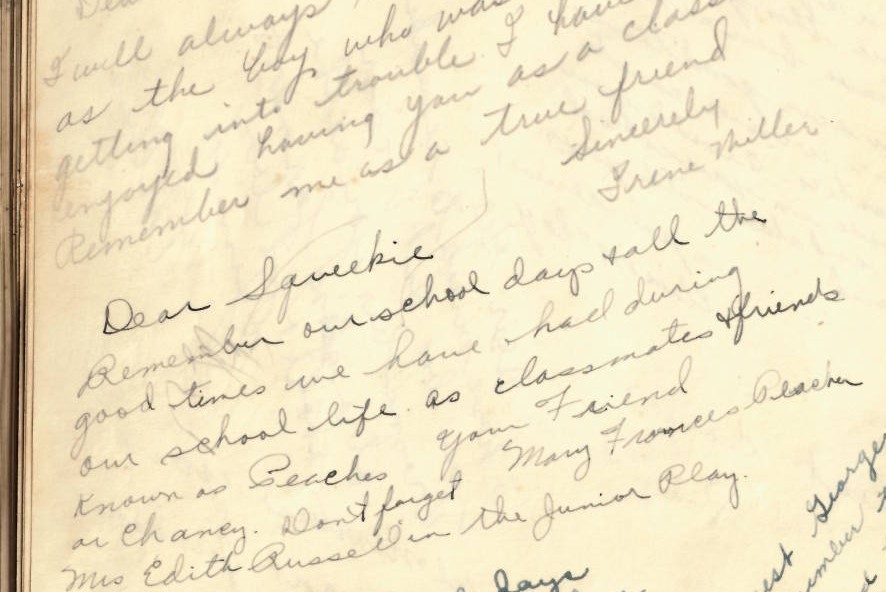 Dear
I will always
as the boy who was
getting into trouble I have
enjoyed having you as a class
Remember me as a true friend
Sincerely
Irene Miller
Dear Squeekie
Remember our school days & all the
good times we have had during
our school life as classmates & friends
Your Friend
Known as Peaches Mary Frances Peacher
or Chancy. Don't forget
Mrs Edith Russell in the Junior Play.
days
George